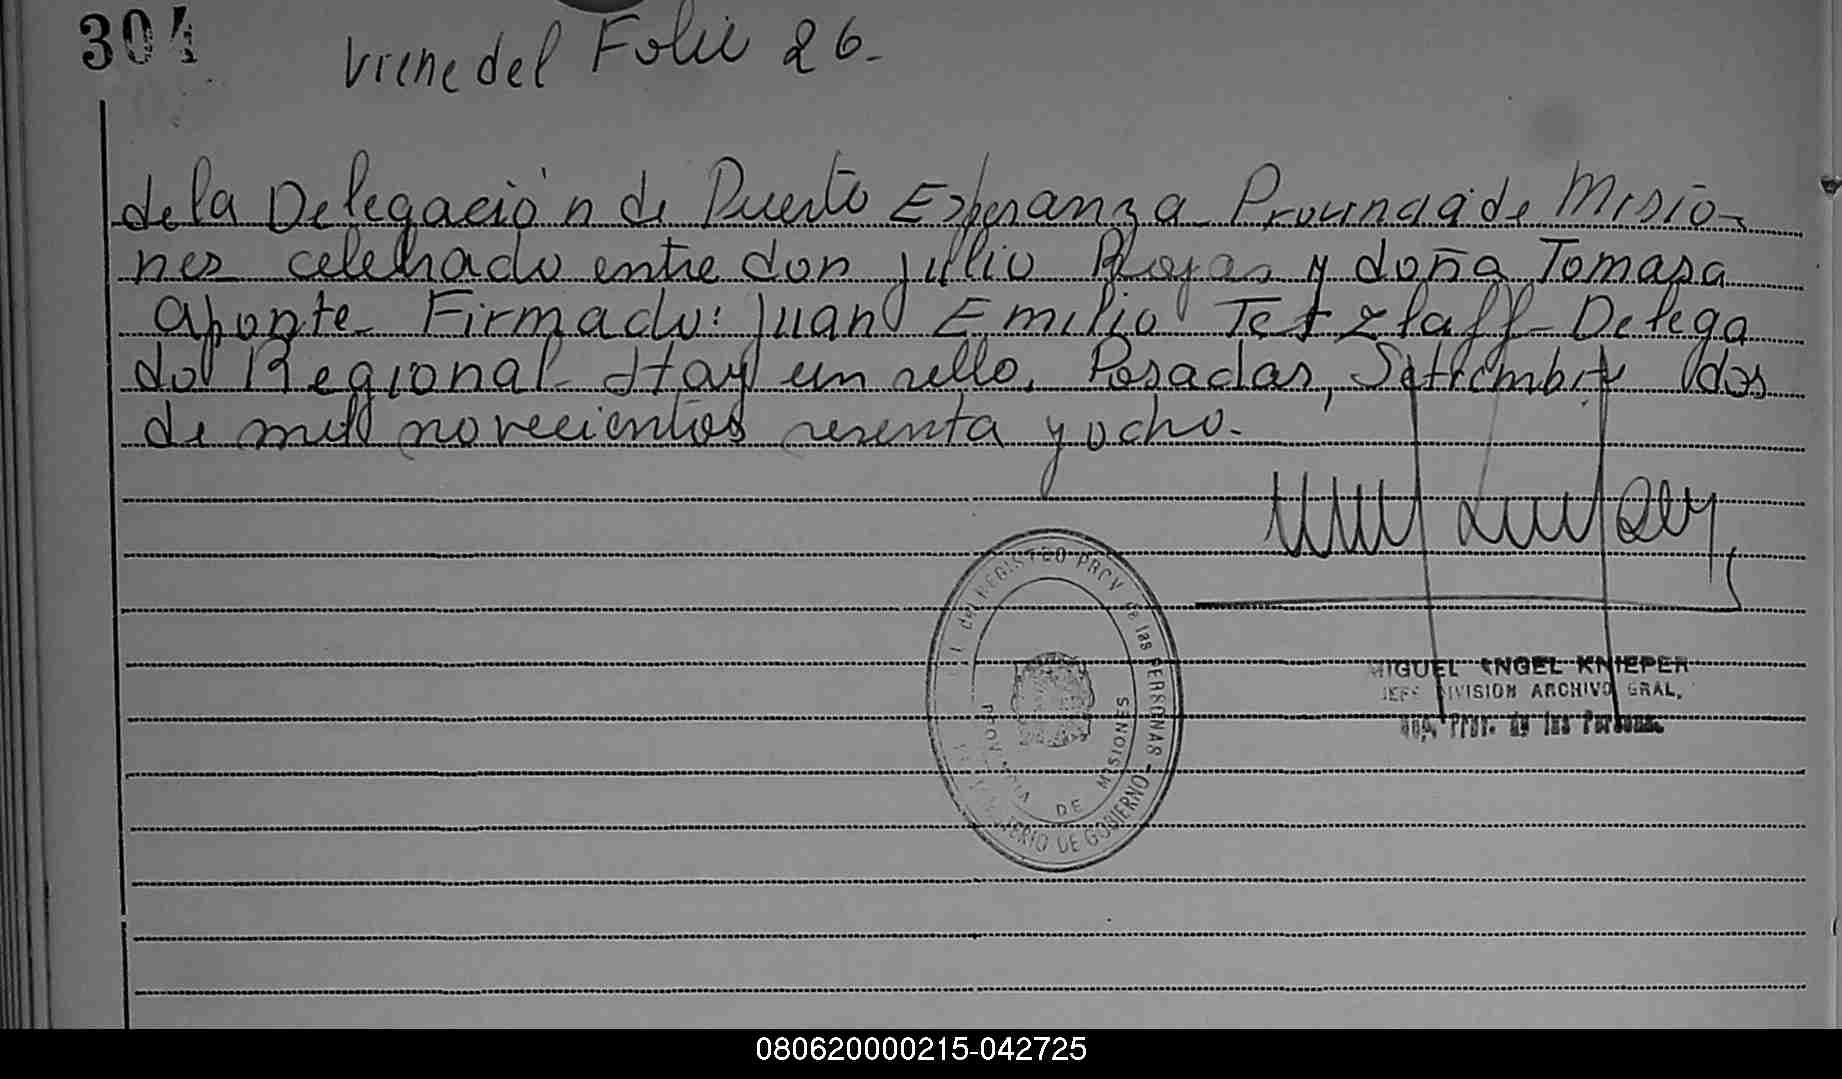 304
Viene del Folio 26.-
de la Delegación de Puerto Esperanza Provincia de Misio-
nes celebrado entre don Julio Rojas y doña Tomasa
Aponte- Firmado: Juan Emilio Tetzlaff- Delega
do Regional- Hay un sello. Posadas, Setiembre dos
de mil novecientos sesenta y ocho.-
del REGISTRO PROV de las PERSONAS -
MINISTERIO DE GOBIERNO
PROVINCIA DE MISIONES
MIGUEL ANGEL KNIEPER
JEFE DIVISION ARCHIVO GRAL.
Prov. de las Personas
080620000215-042725